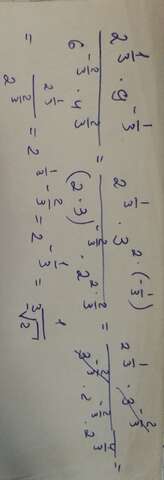 2^{1/3} · 9^{-1/3} / 6^{-2/3} · 4^{2/3} = 2^{1/3} · 3^{2·(-1/3)} / (2·3)^{-2/3} · 2^{2·2/3} = 2^{1/3} · 3^{-2/3} / 3^{-2/3} · 2^{-2/3} · 2^{4/3} =
= 2^{1/3} / 2^{2/3} = 2^{1/3 - 2/3} = 2^{-1/3} = 1 / ∛2